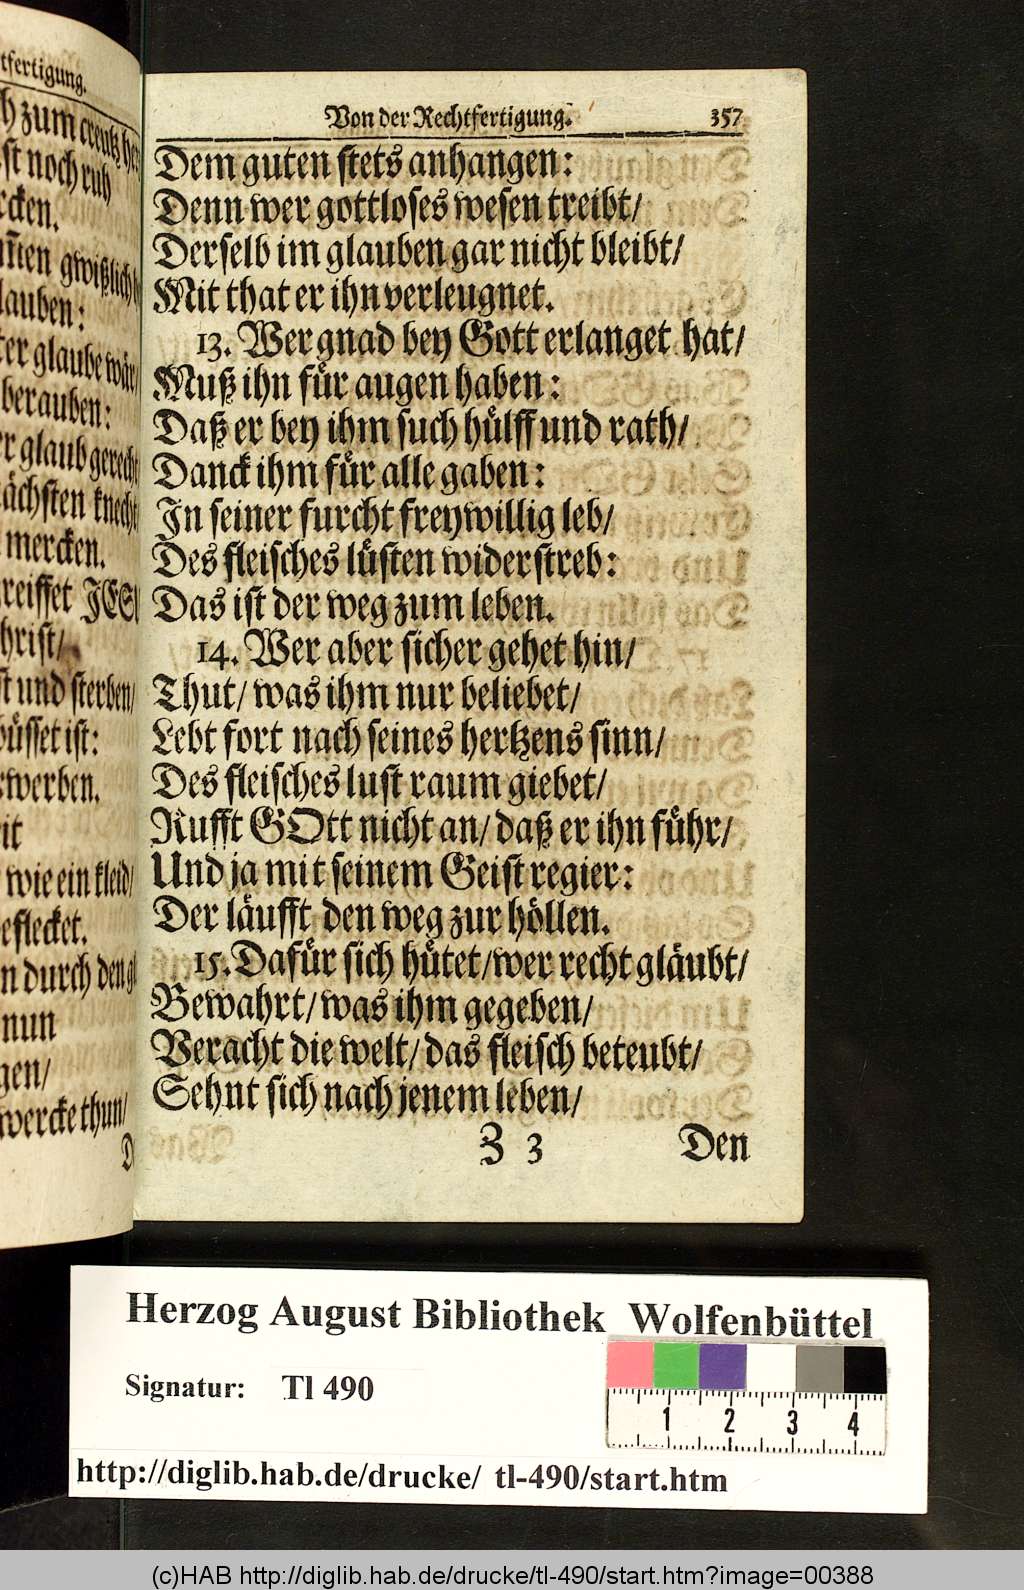 tfertigung.
zum creutz
st noch ruh
cken.
gwißlich
lauben:
er glaube wär/
berauben:
glaub gerecht
ächsten knecht
mercken.
reiffet JESU
hrist/
st und sterben/
büsset ist:
rwerben.
it
wie ein kleid/
efleckt.
n durch den
nun
gen/
wercke thun/
D
Von der Rechtfertigung. 357
Dem guten stets anhangen:
Denn wer gottloses wesen treibt/
Derselb im glauben gar nicht bleibt/
Mit that er ihn verleugnet.
13. Wer gnad bey Gott erlanget hat/
Muß ihn für augen haben:
Daß er bey ihm such hülff und rath/
Danck ihm für alle gaben:
In seiner furcht freywillig leb/
Des fleisches lüsten widerstreb:
Das ist der weg zum leben.
14. Wer aber sicher gehet hin/
Thut/ was ihm nur beliebet/
Lebt fort nach seines hertzens sinn/
Des fleisches lust raum giebet/
Rufft GOtt nicht an/ daß er ihn führ/
Und ja mit seinem Geist regier:
Der läufft den weg zur höllen.
15. Dafür sich hütet/ wer recht gläubt/
Bewahrt/ was ihm gegeben/
Veracht die welt/ das fleisch beteubt/
Sehnt sich nach jenem leben/
Z 3 Den
Herzog August Bibliothek Wolfenbüttel
Signatur: Tl 490
1 2 3 4
http://diglib.hab.de/drucke/ tl-490/start.htm
(c)HAB http://diglib.hab.de/drucke/tl-490/start.htm?image=00388